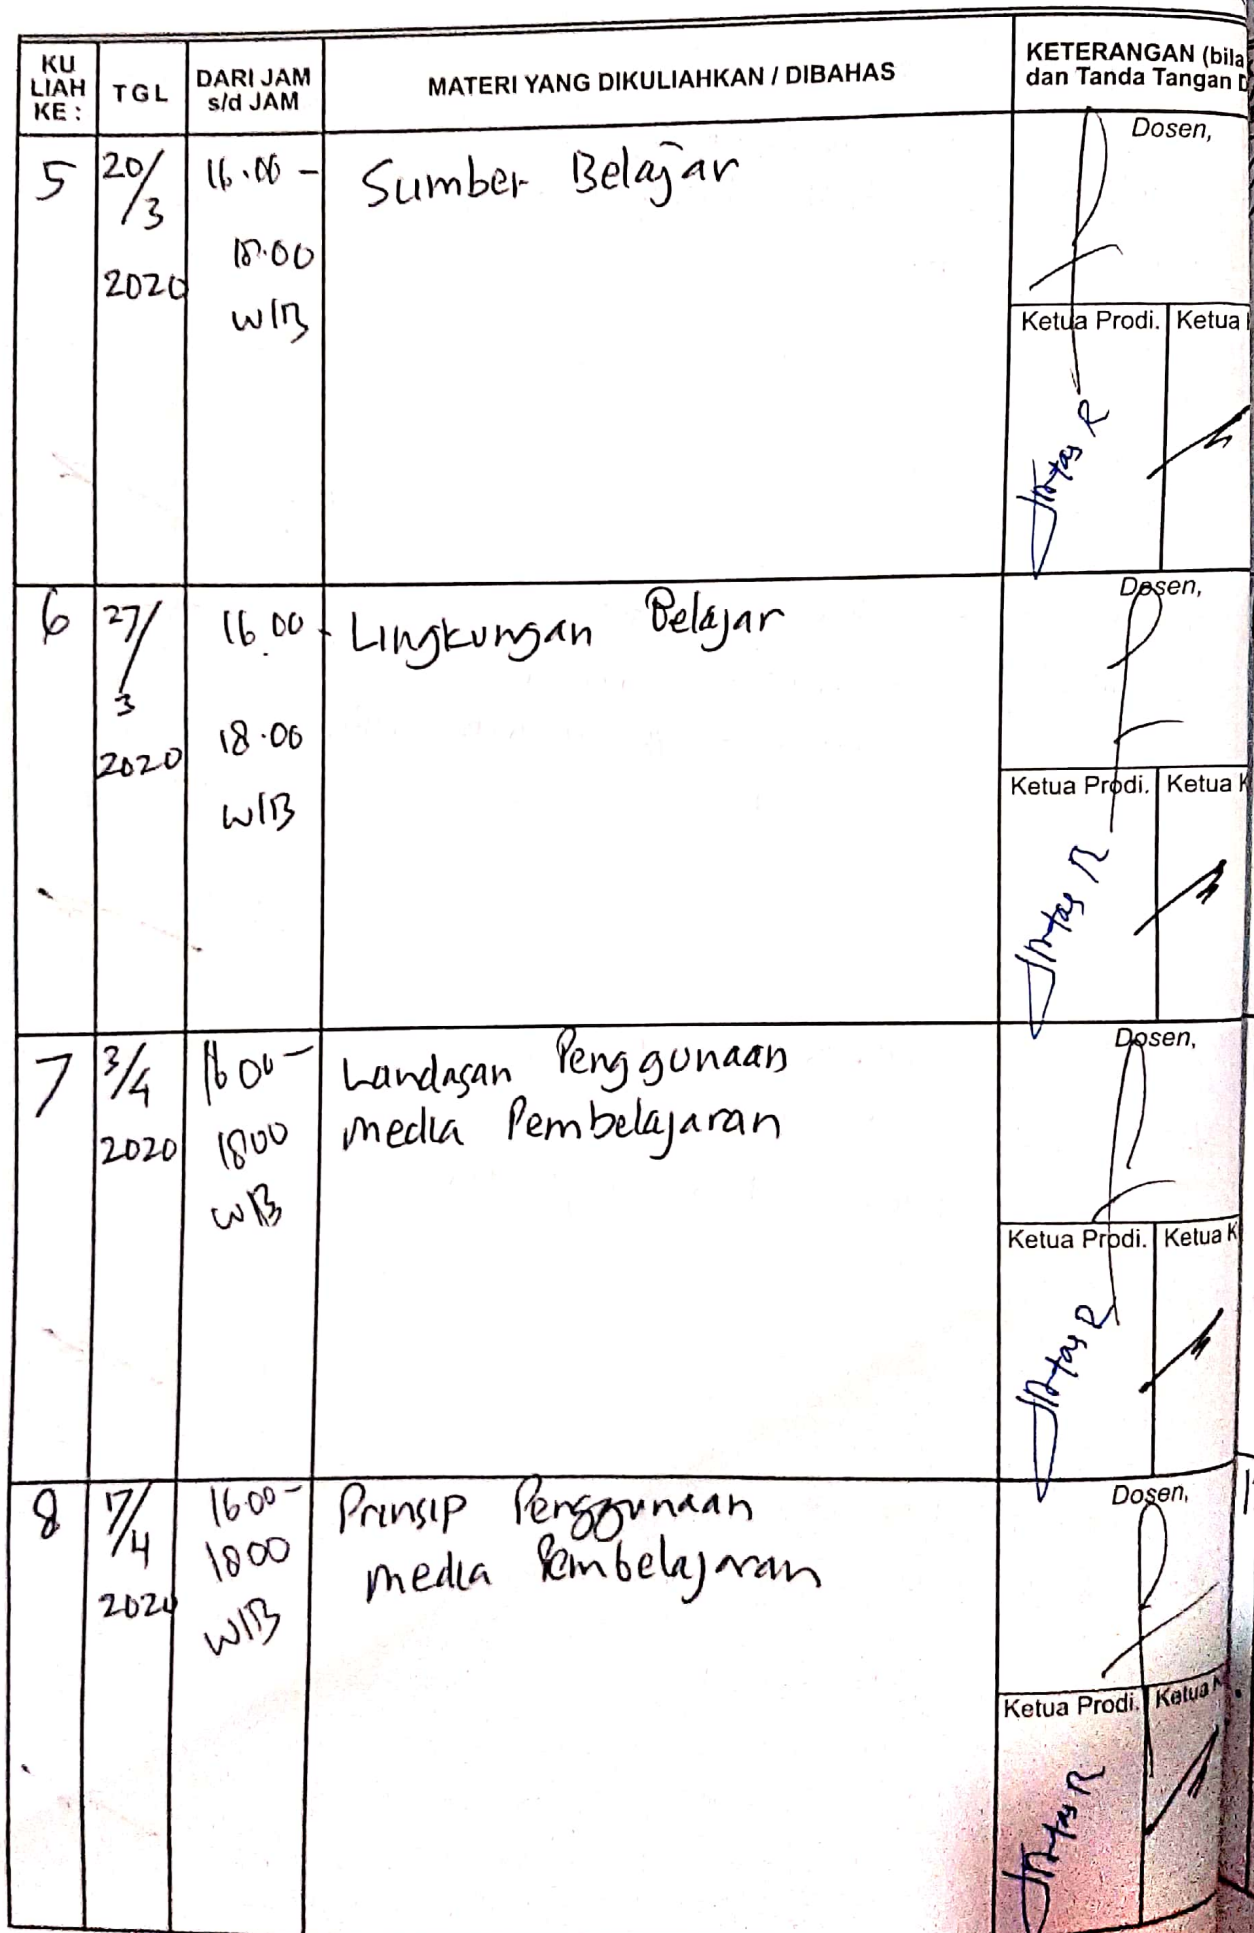 KU LIAH KE :
TGL
DARI JAM s/d JAM
MATERI YANG DIKULIAHKAN / DIBAHAS
KETERANGAN (bila
dan Tanda Tangan D
5
20/3
2020
16.00 -
18.00
WIB
Sumber Belajar
Dosen,
Ketua Prodi.
Ketua
6
27/3
2020
16.00 -
18.00
WIB
Lingkungan Belajar
Dosen,
Ketua Prodi.
Ketua K
7
3/4
2020
16 00 -
1800
WIB
Landasan Penggunaan
media Pembelajaran
Dosen,
Ketua Prodi.
Ketua K
8
17/4
2020
16.00 -
1800
WIB
Prinsip Penggunaan
media Pembelajaran
Dosen,
Ketua Prodi.
Ketua K